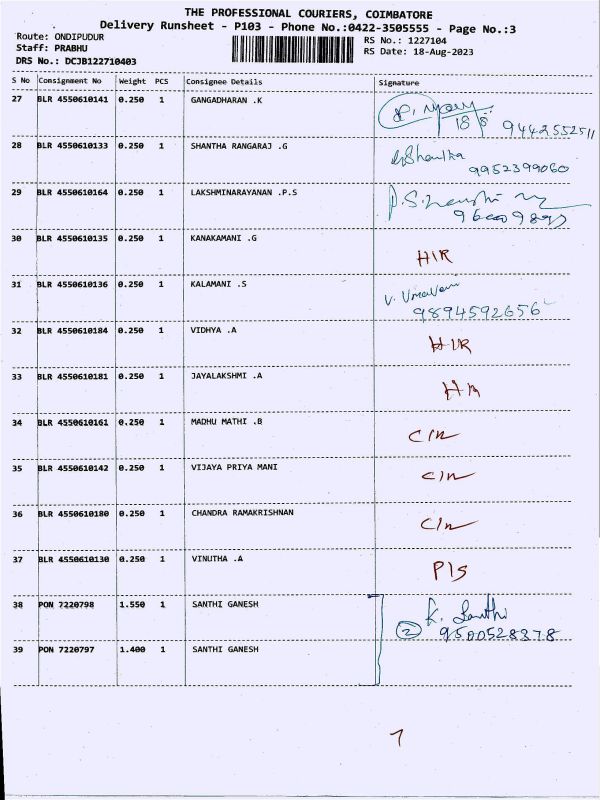 THE PROFESSIONAL COURIERS, COIMBATORE
Delivery Runsheet - P103 - Phone No.:0422-3505555 - Page No.:3
Route: ONDIPUDUR RS No.: 1227104
Staff: PRABHU RS Date: 18-Aug-2023
DRS No.: DCJB122710403
S No Consignment No Weight PCS Consignee Details Signature
27 BLR 4550610141 0.250 1 GANGADHARAN .K
18/8 9442552511
28 BLR 4550610133 0.250 1 SHANTHA RANGARAJ .G Shantha
9952399060
29 BLR 4550610164 0.250 1 LAKSHMINARAYANAN .P.S P.S.
30 BLR 4550610135 0.250 1 KANAKAMANI .G
H/R
31 BLR 4550610136 0.250 1 KALAMANI .S
9894592656
32 BLR 4550610184 0.250 1 VIDHYA .A
H/R
33 BLR 4550610181 0.250 1 JAYALAKSHMI .A
34 BLR 4550610161 0.250 1 MADHU MATHI .B
C/n
35 BLR 4550610142 0.250 1 VIJAYA PRIYA MANI
C/n
36 BLR 4550610180 0.250 1 CHANDRA RAMAKRISHNAN
C/n
37 BLR 4550610130 0.250 1 VINUTHA .A
P/S
38 PON 7220798 1.550 1 SANTHI GANESH K. Santhi
2 9500528378
39 PON 7220797 1.400 1 SANTHI GANESH